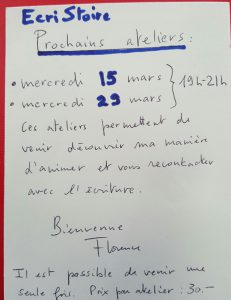 EcriStoire
Prochains ateliers :
• mercredi 15 mars } 19h-21h
• mercredi 29 mars
Ces ateliers permettent de
venir découvrir ma manière
d'animer et vous reconnecter
avec l'écriture.
Bienvenue
Florence
Il est possible de venir une
seule fois. Prix par atelier : 30.-